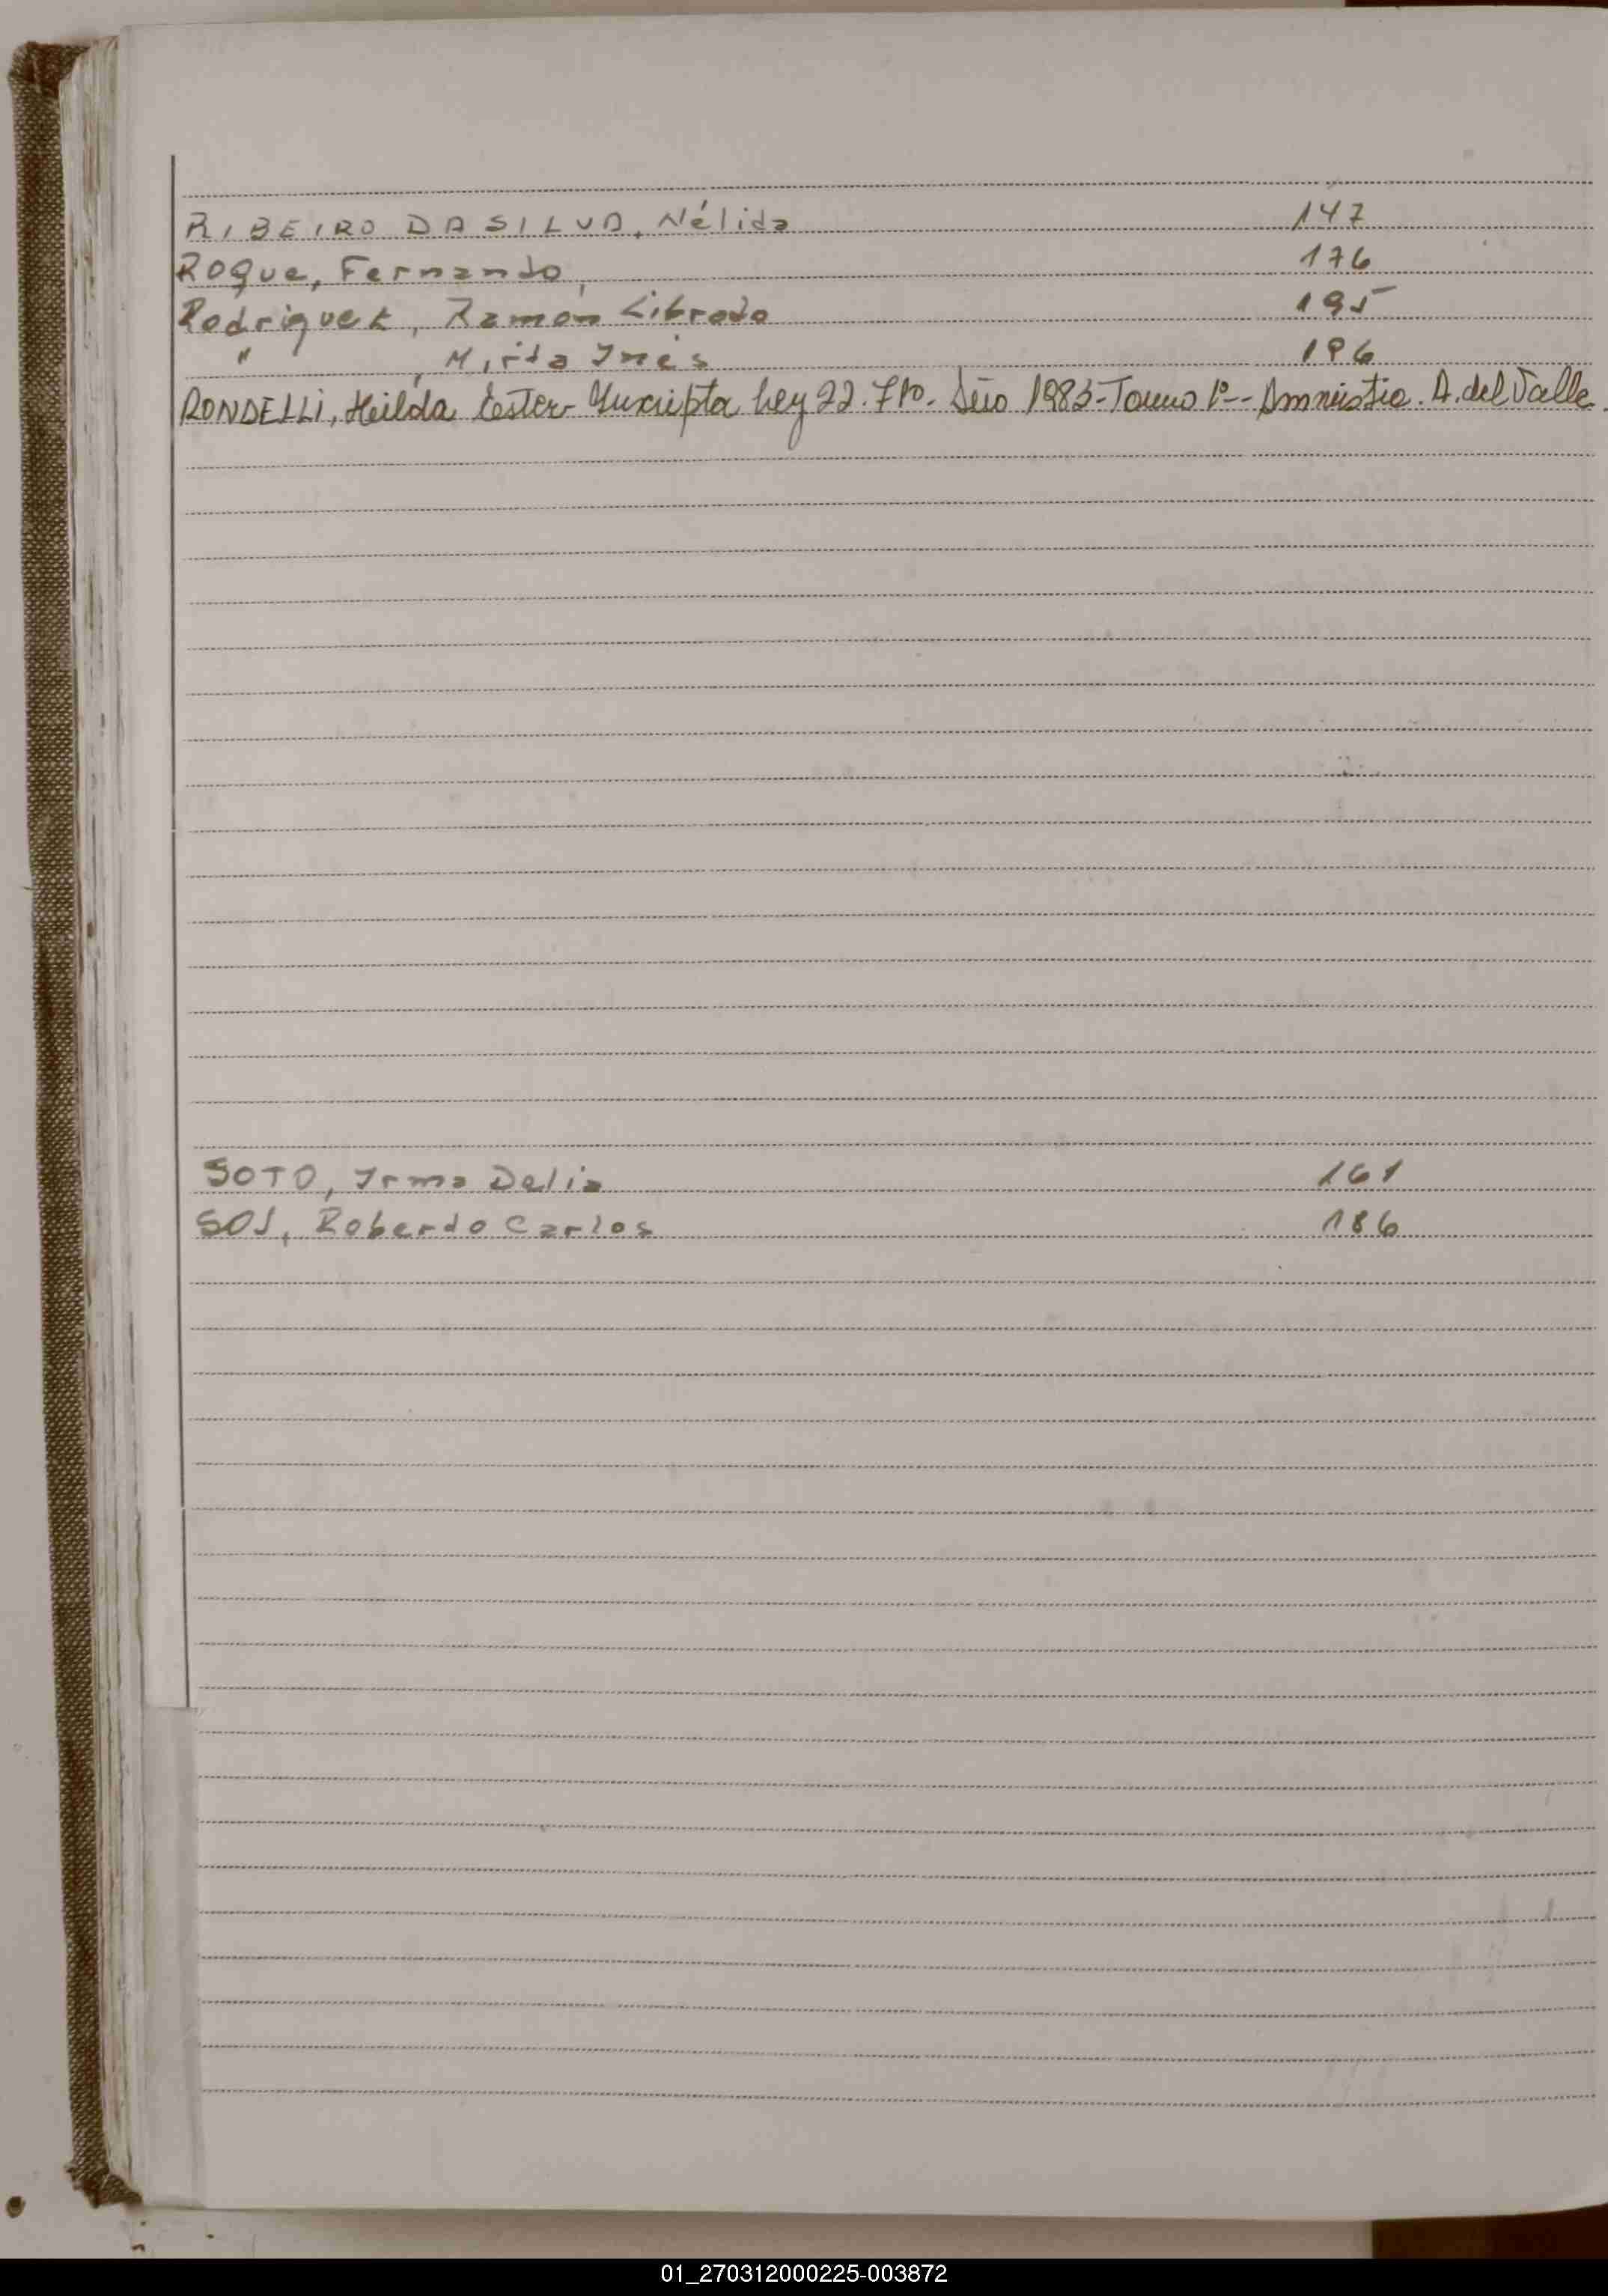 RIBEIRO DA SILVA, Nélida 147
Roque, Fernando 176
Rodriguez, Ramón Librado 195
" , Mirta Inés 196
RONDELLI, Heilda Ester - Inscripta Ley 22.710. Año 1983 - Tomo 1º - Amnistia. A. del Valle.
SOTO, Irma Delia 161
SOS, Roberto Carlos 186
01_270312000225-003872